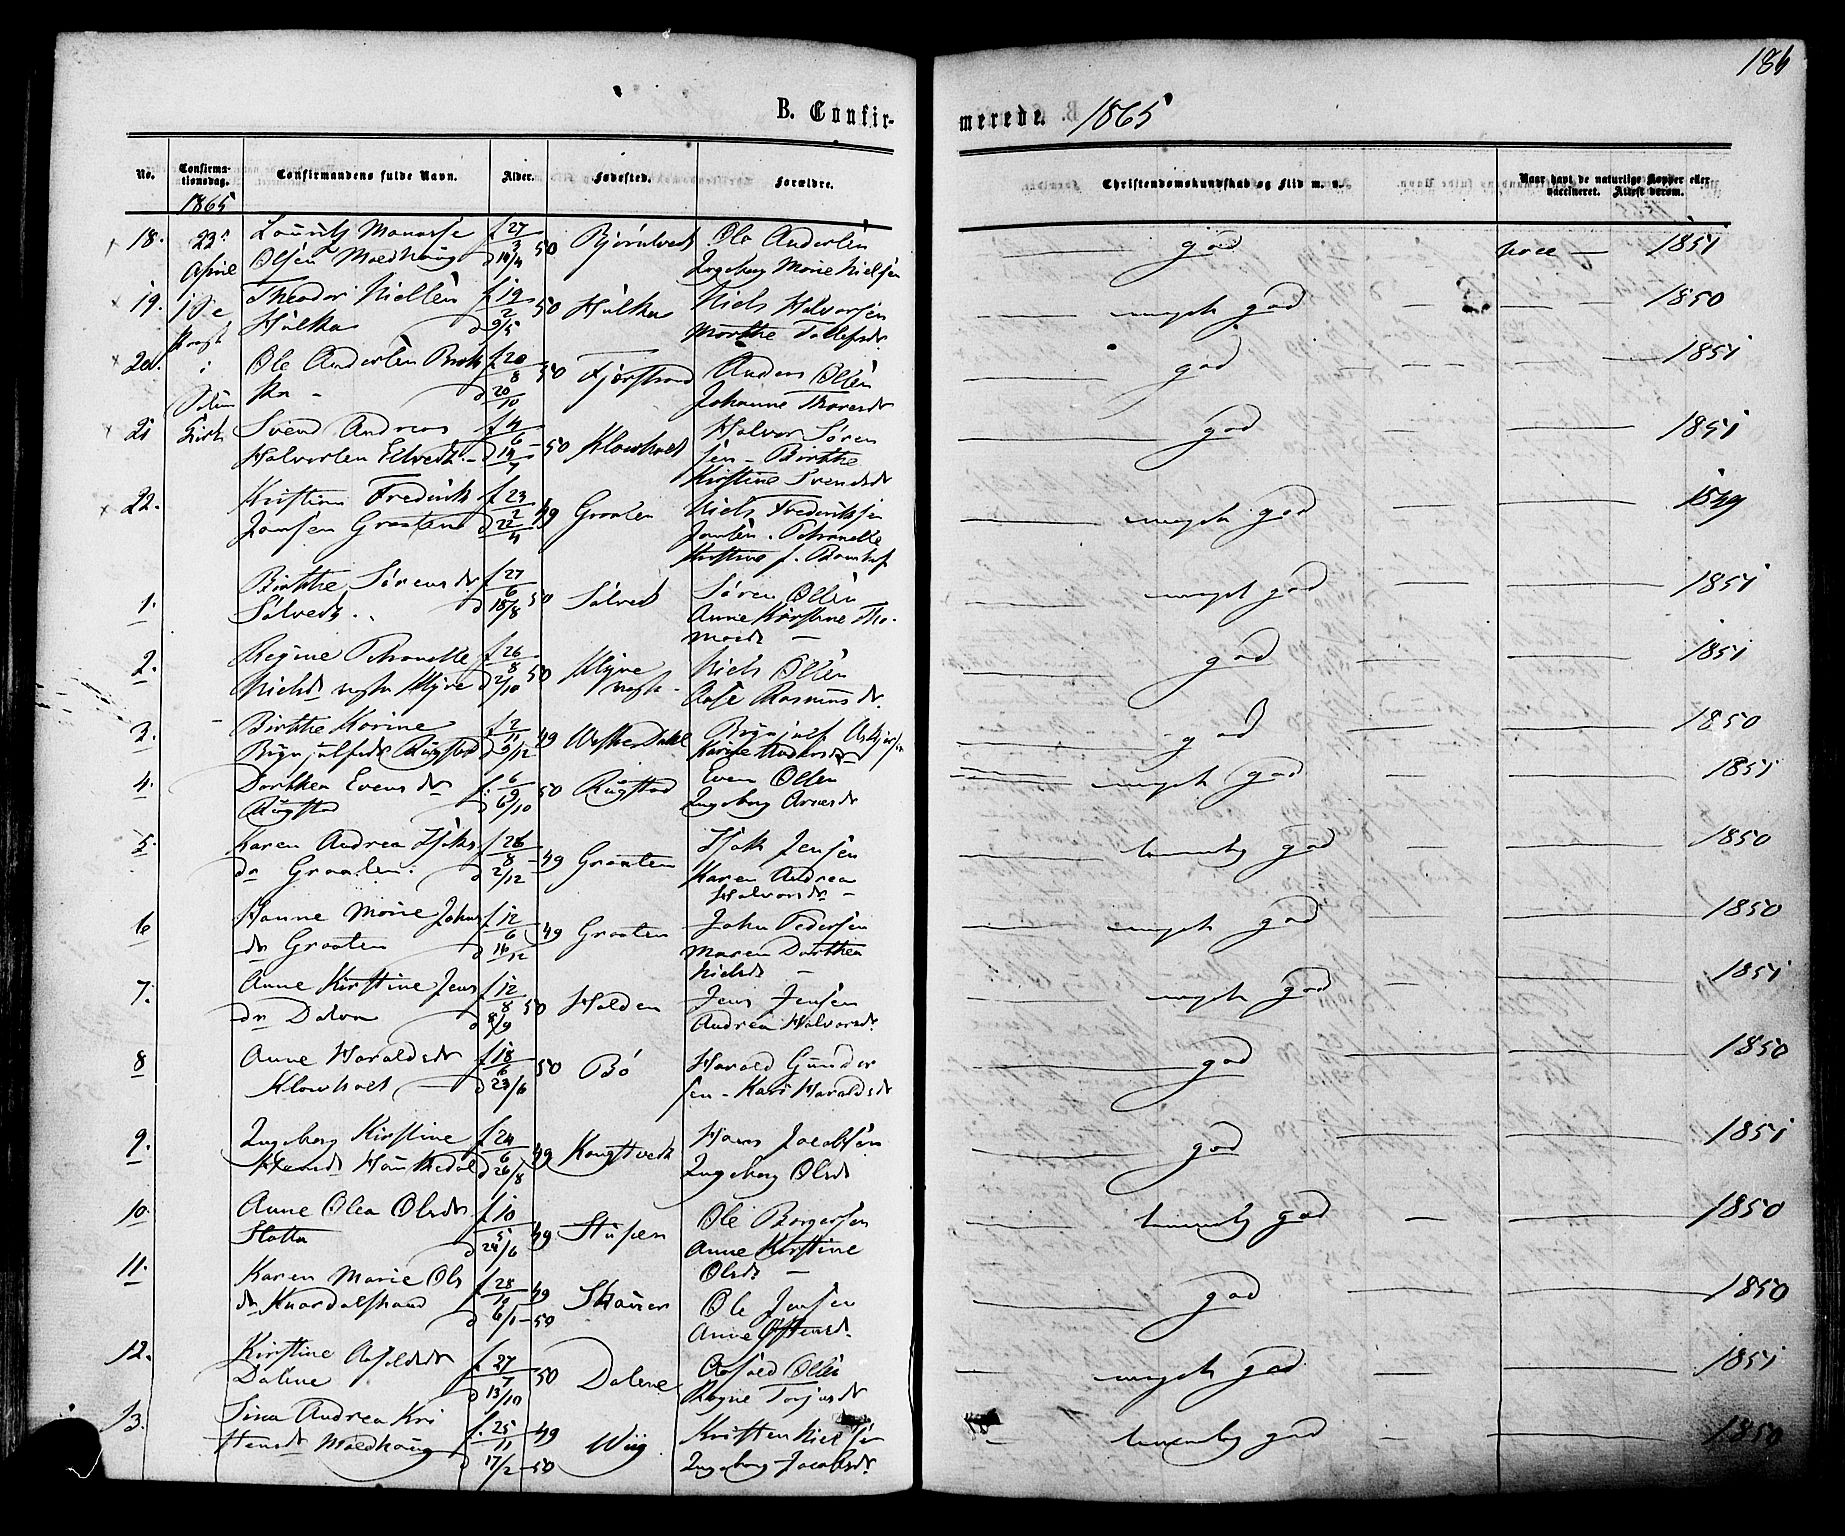 186
B. Confirmerede. 1865
No. Confirmationsdag. Confirmandens fulde Navn. Alder. Fødested. Forældre. Christendomskundskab og Flid m. v. Naar havt de naturlige Kopper eller vaccineret. Attest derom.
1865
18. 23de Laurits Manasse f 27/3 50 Bjørntvedt Ole Andersen god vacc 1851
April Olsen Moldhaug d 14/4 Ingeborg Marie Nielsen
19. Theodor Nielsen f 19/2 50 Hulka Niels Halvorsen meget god 1850
Hulka d 9/5 Marthe Tollefsdr
20. i Ole Andersen f 20/8 50 Fjærstrand Anders Olsen god 1851
d 20/10 Johanne Thoresdr
21 Kirke Svend Andreas f 4/6 50 Klovholt Halvor Søren god 1851
Halvorsen d 14/7 sen - Birthe
Kirstine Svendsdr
22. Kristian Frederik f 23/2 49 Graaten Niels Frederiksen meget god 1849
Jansen Graaten d 22/4 Jansen. Petronelle
Kirstine f.
1. Birthe Sørensdr f 27/6 50 Sølvedt Søren Olsen meget god 1851
Sølvedt. d 18/8 Anne Kirstine Tho-
masdr
2. Regine Petronelle f 26/8 50 Myre Niels Olsen god 1851
Nielsdr Myre d 2/10 Aase Rasmusdr.
3. Birthe Karine f 2/11 49 Wester Dahl god 1850
Brynjulfsdr Rugstad d 9/12 Karine
4. Dorthea Evensdr f. 6/9 50 Rugstad Even Olsen meget god 1851
Rugstad d 6/10 Ingeborg Arnesdr
5. Karen Andrea Isaks f 26/8 49 Graaten Isak Jensen temmelig god 1850
dr Graaten. d 2/12 Karen Andrea
Halvorsdr
6 Hanne Marie Johns f 12/6 49 Graaten John Pedersen meget god 1850
dr Graaten d 16/12 Maren Dorthea
Nielsdr
7. Anne Kirstine Jens f 12/8 50 Holden Jens Jensen meget god 1851
dr Dalen d 8/9 Andrea Halvorsdr.
8 Anne Haraldsdr f 18/6 50 Bö Harald Gunder god 1850
Klovholt d 23/6 sen - Kari Haraldsdr
9. Ingeborg Kirstine f 24/6 49 Kongtvedt Hans Jacobsen god 1851
Hansdr d 26/8 Ingeborg Olsdr
10. Anne Olea Olsdr f 10/5 49 Stulen Ole Borgersen temmelig god 1850
Slotta d 24/6 Anne Kirstine
Olsdr
11. Karen Marie Ols f 28/10 49 Skauen Ole Jensen god 1850
dr Knardalstrand d 6/1 50 Anne Ostensdr.
12. Kirstine f 27/7 50 Dalene Olsen meget god 1851
Dalene d 13/10 Torjusdr
13. Sina Andrea Kri f. 25/11 49 Wiig Kristen Nielsen temmelig god 1850
stensdr Moldhaug d 17/2 50 Ingeborg Jacobsdr.